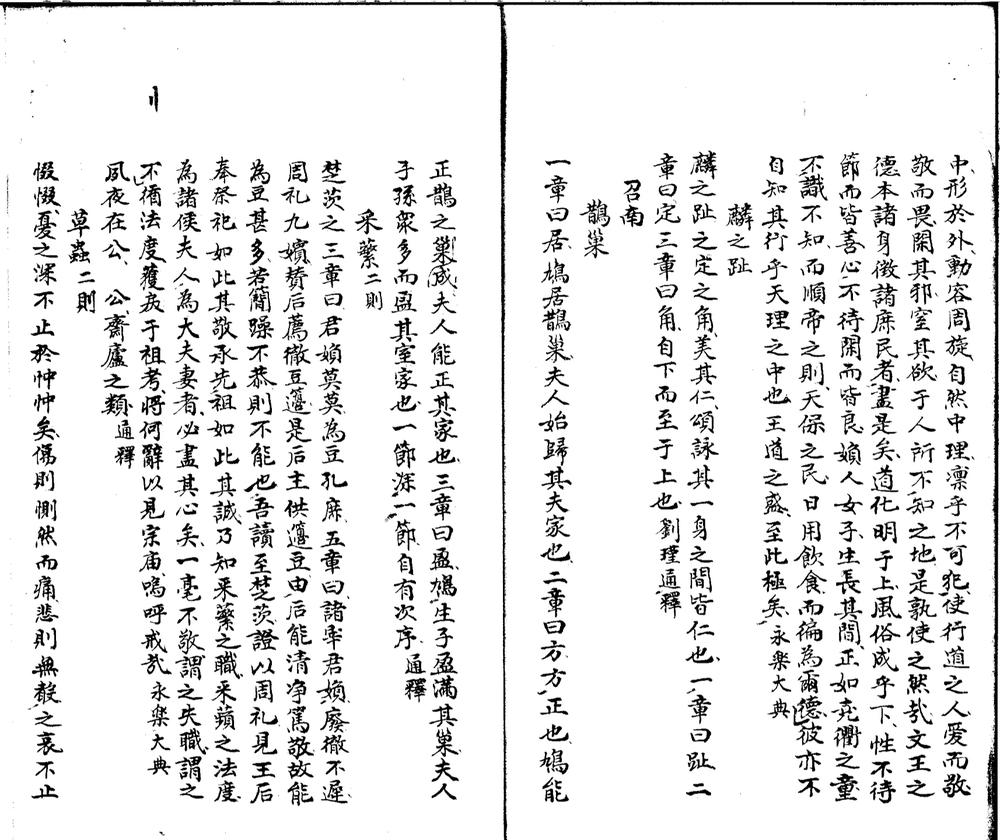 中形於外動容周旋自然中理凛乎不可犯使行道之人爱而敬
敬而畏閑其邪窒其欲于人所不知之地是孰使之然㢤文王之
德本諸身徴諸庶民者盡是矣道化明于上風俗成乎下性不待
節而皆善心不待閑而皆良婦人女子生長其間正如堯衢之童
不識不知而順帝之則天保之民日用飲食而徧為爾德彼亦不
自知其行乎天理之中也王道之盛至此極矣永樂大典
麟之趾
麟之趾之定之角美其仁頌詠其一身之間皆仁也一章曰趾二
章曰定三章曰角自下而至于上也劉瑾通釋
召南
鵲巢
一章曰居鳩居鵲巢夫人始歸其夫家也二章曰方方正也鳩能
正鵲之巢成夫人能正其家也三章曰盈鳩生子盈滿其巢夫人
子孫衆多而盈其室家也一節深一節自有次序通釋
采蘩二則
楚茨之三章曰君婦莫莫為豆孔庶五章曰諸宰君婦廢徹不遲
周礼九嬪賛后薦徹豆籩是后主供籩豆由后能清净篤敬故能
為豆甚多若簡躁不恭則不能也吾讀至楚茨證以周礼見王后
奉祭祀如此其敬承先祖如此其誠乃知采蘩之職采蘋之法度
為諸侯夫人為大夫妻者必盡其心矣一毫不敬謂之失職謂之
不循法度獲戾于祖考将何辭以見宗庙嗚呼戒㢤永樂大典
夙夜在公公齋廬之類通釋
草蟲二則
惙惙憂之深不止於忡忡矣傷則惻然而痛悲則無聲之哀不止